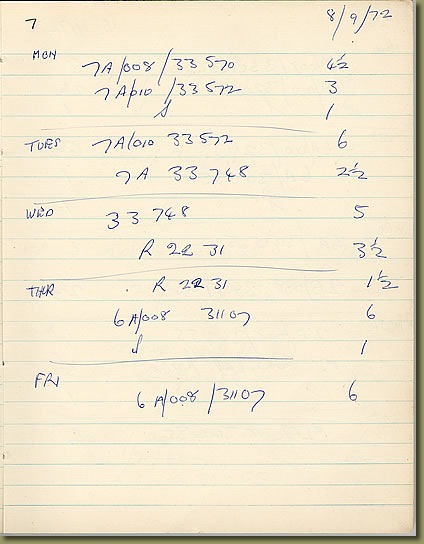 7 8/9/72
MON 7A/008/33 570 4½
7A/010/33572 3
S 1
TUES 7A/010 33 572 6
7A 33 748 2½
WED 33 748 5
R 22 31 3½
THUR R 22 31 1½
6A/008 31107 6
S 1
FRI 6A/008/31107 6